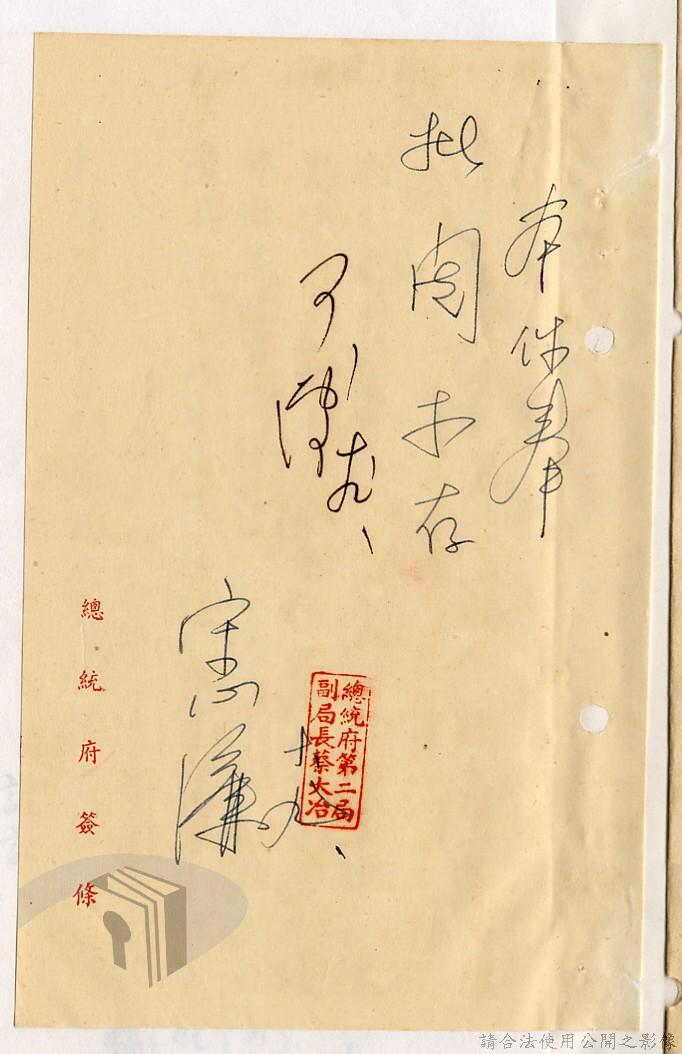 本件奉
批閱才存
可
十九、
總統府第二局
副局長蔡大冶
總統府簽條
請合法使用公開之影像